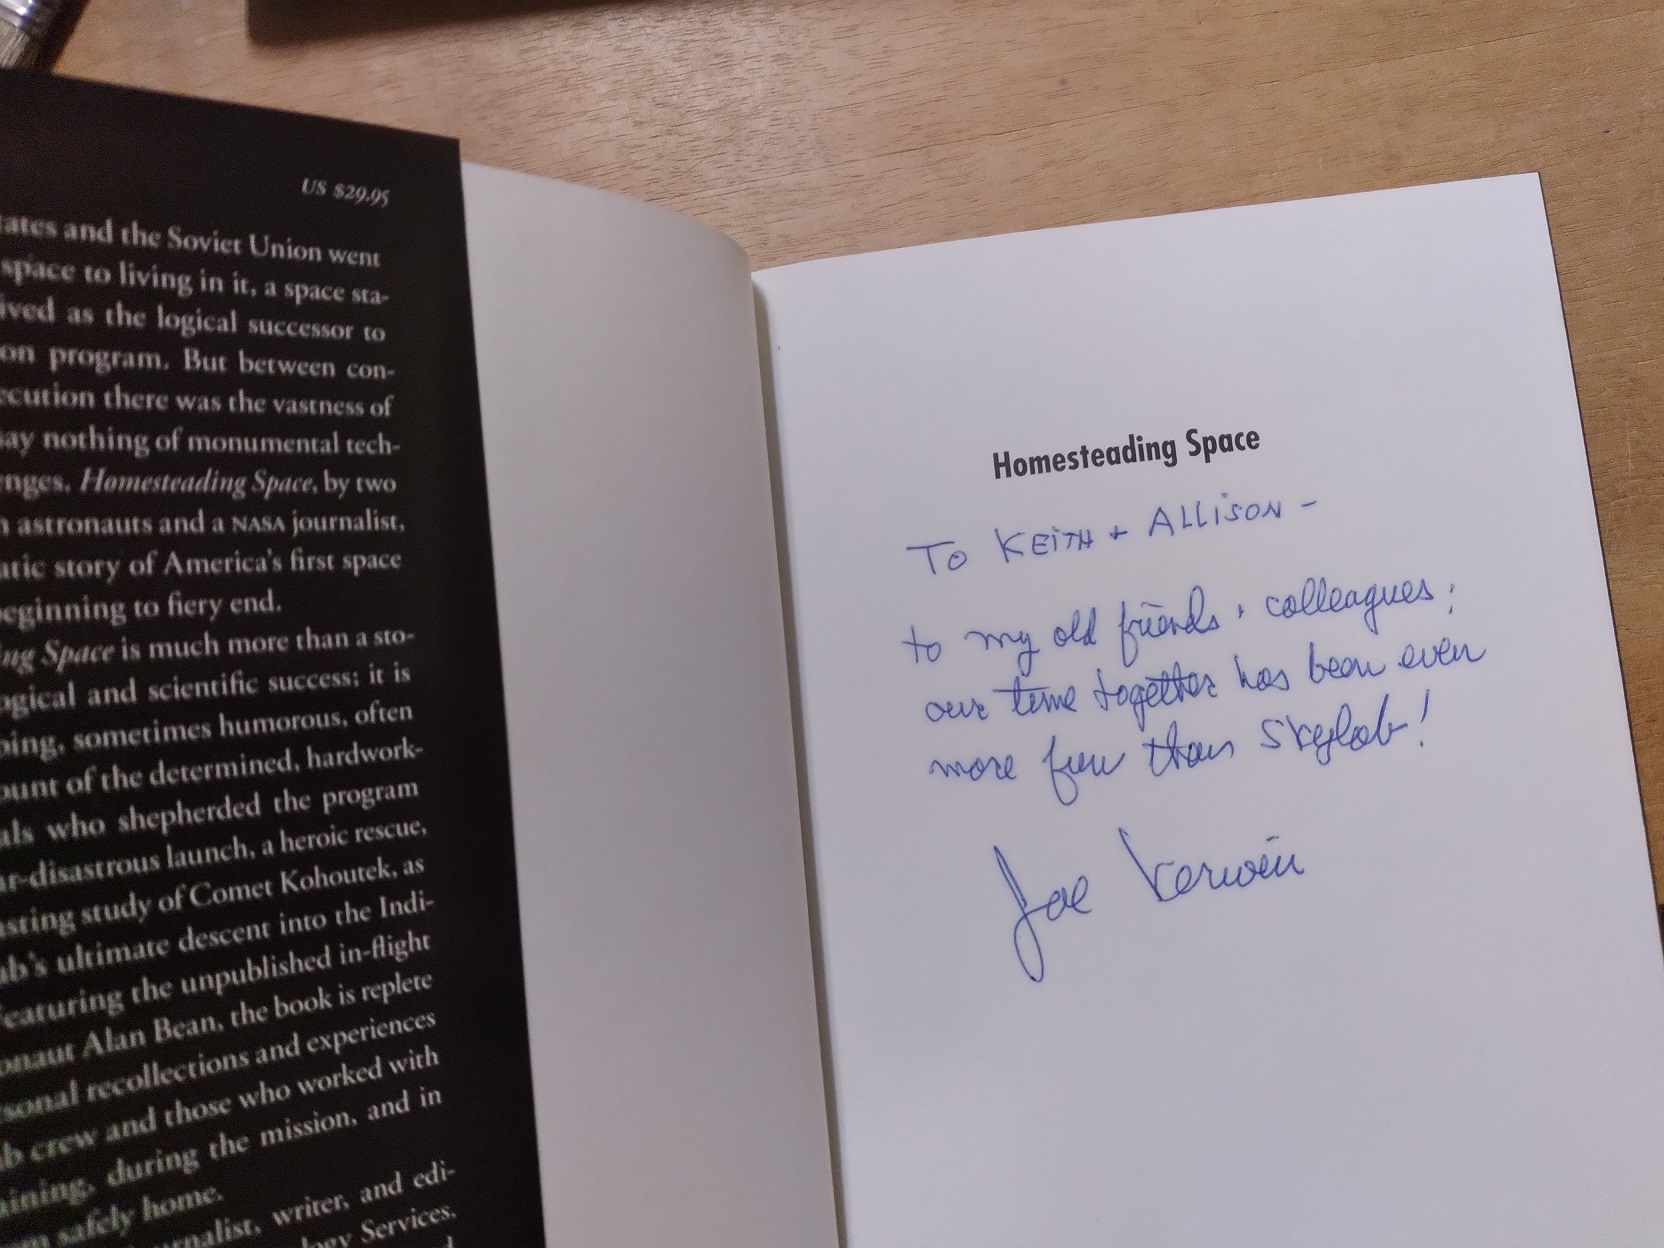 US $29.95
ates and the Soviet Union went
space to living in it, a space sta-
ived as the logical successor to
on program. But between con-
ecution there was the vastness of
say nothing of monumental tech-
nges. Homesteading Space, by two
n astronauts and a NASA journalist,
atic story of America's first space
beginning to fiery end.
ng Space is much more than a sto-
ogical and scientific success; it is
ping, sometimes humorous, often
ount of the determined, hardwork-
als who shepherded the program
ar-disastrous launch, a heroic rescue,
sting study of Comet Kohoutek, as
ab's ultimate descent into the Indi-
eaturing the unpublished in-flight
onaut Alan Bean, the book is replete
sonal recollections and experiences
b crew and those who worked with
aining, during the mission, and in
m safely home.
urnalist, writer, and edi-
logy Services.
Homesteading Space
To KEITH + ALLISON -
to my old friends, colleagues;
our time together has been even
more fun than Skylab!
Joe Kerwin